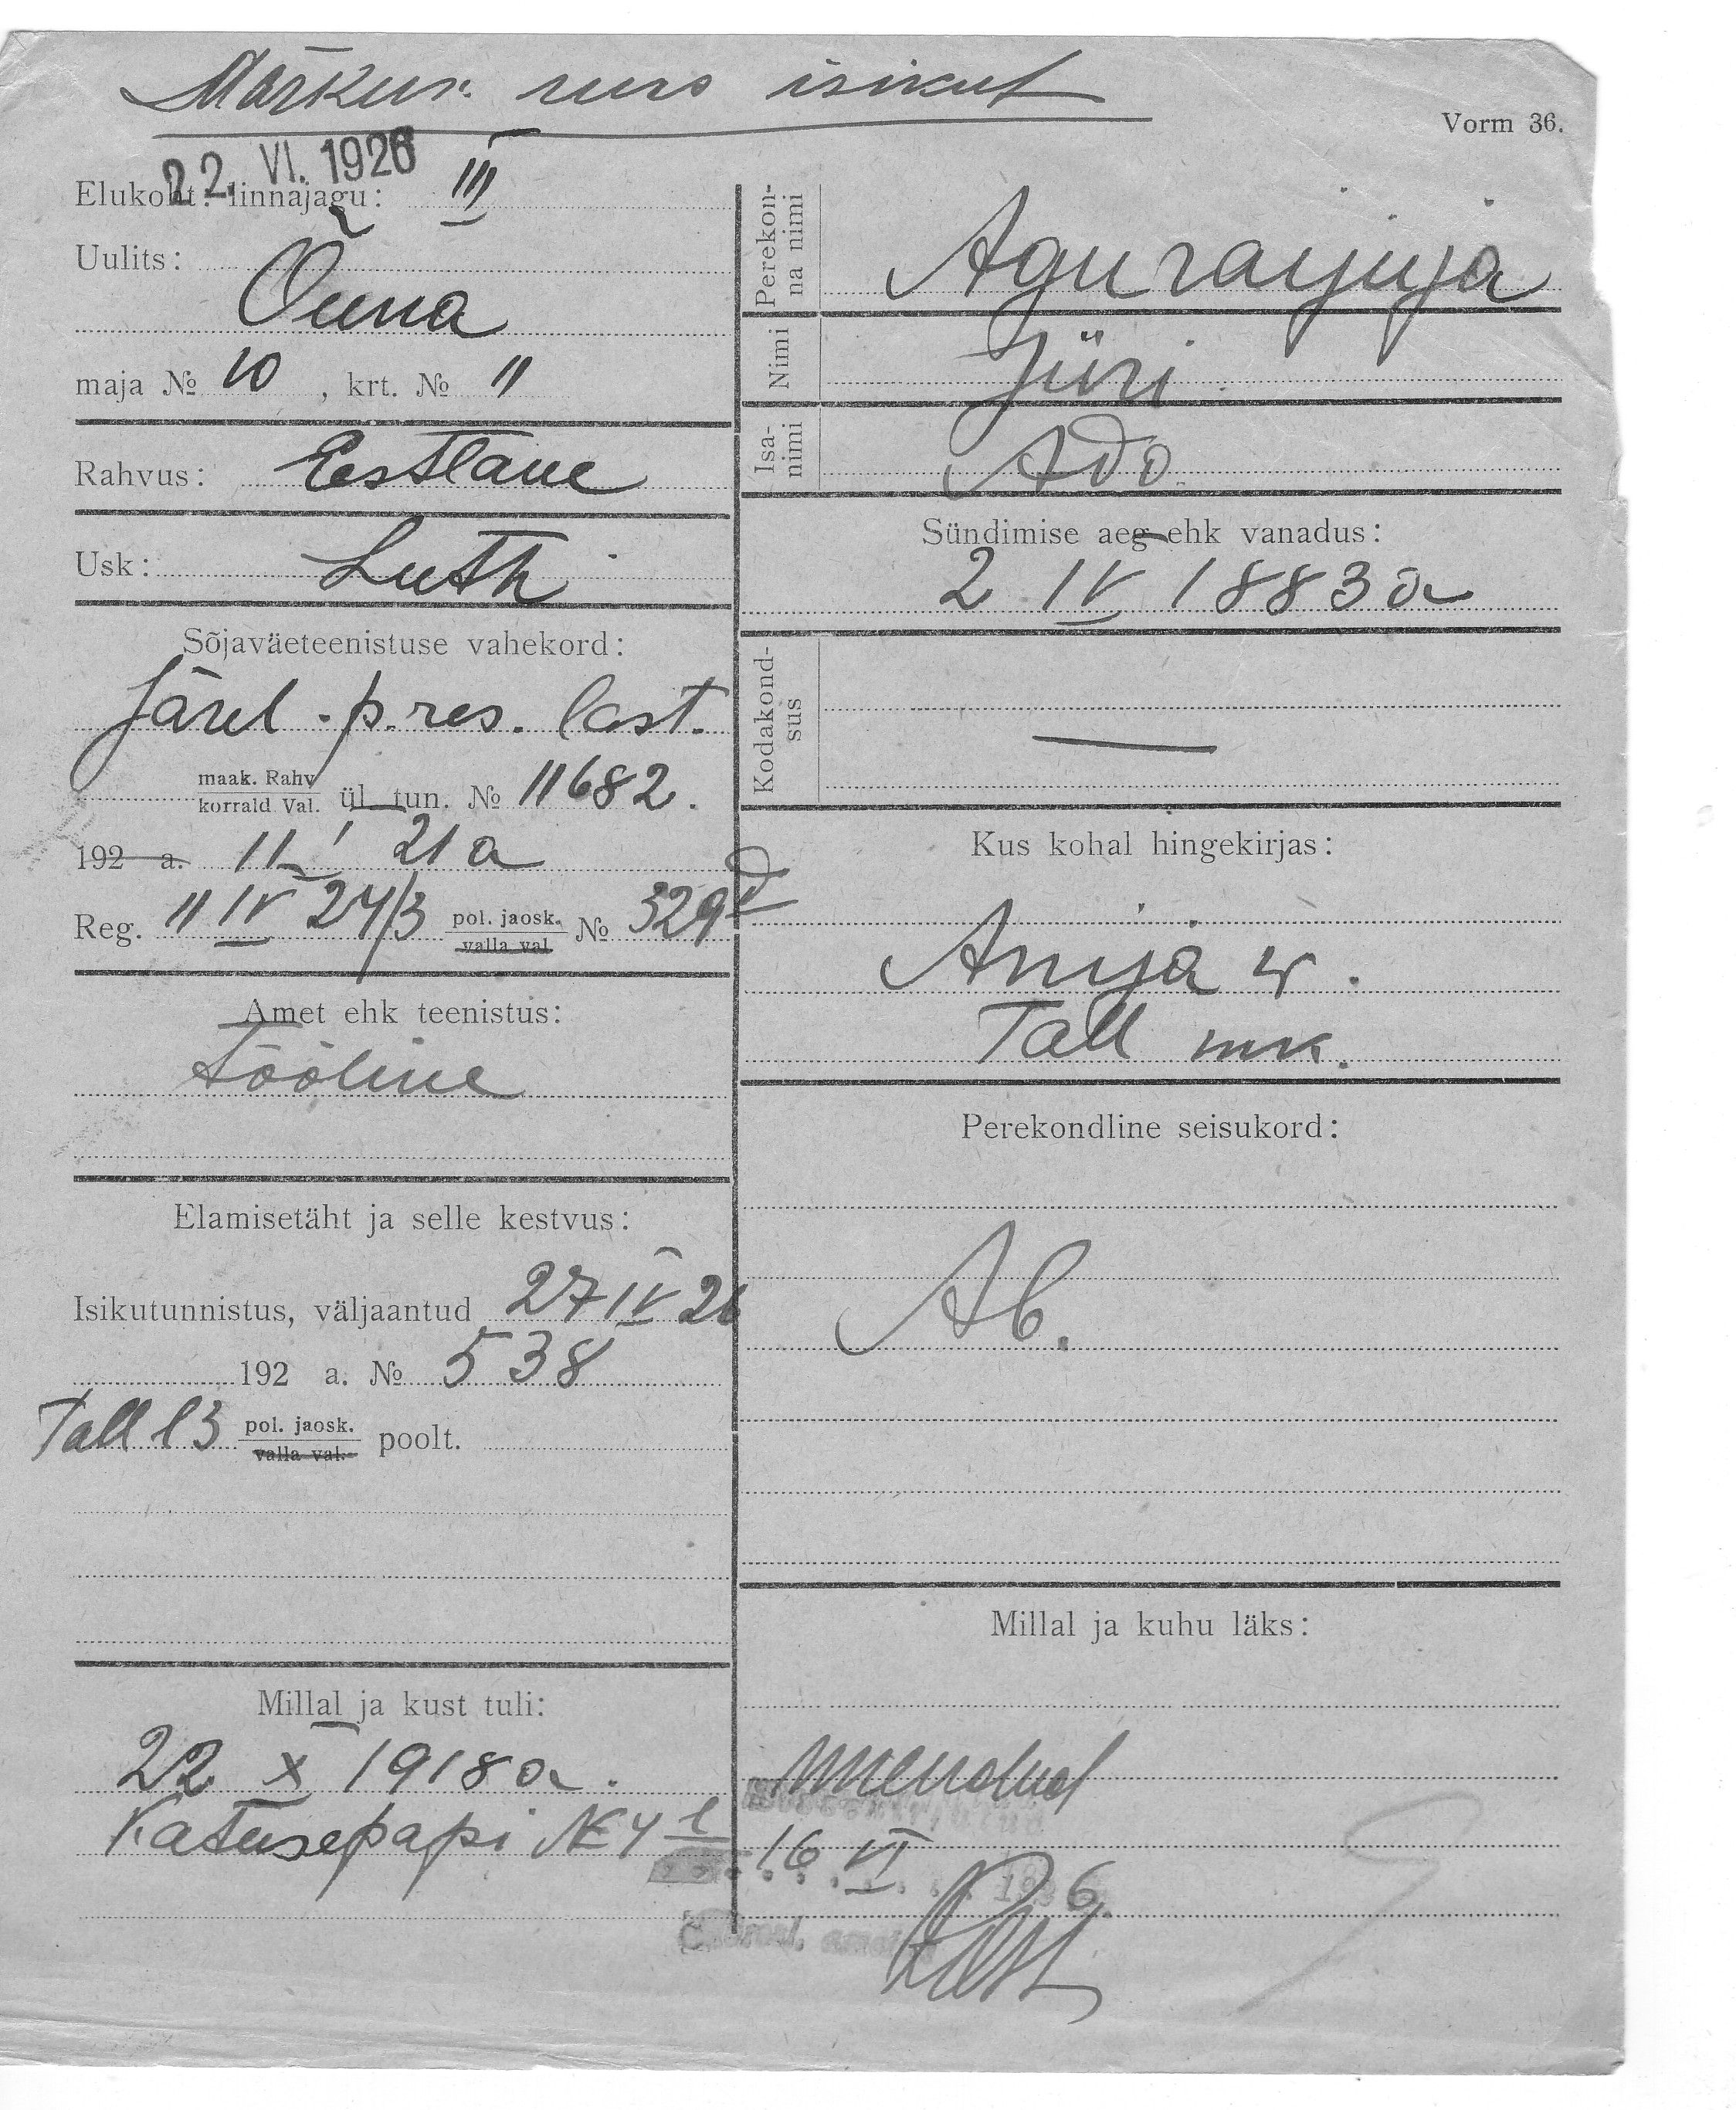 Märkus: uus isikut
Vorm 36.
22. VI. 1926
Elukoht: linnajagu: III
Uulits:
Õuna
maja № 10, krt. № 11
Rahvus: Eestlane
Usk: Luth
Sõjaväeteenistuse vahekord:
Järel. p. res.
maak. Rahv
korrald Val. ül tun. № 11682.
192 a. 11 I 21 a
Reg. 11 IV 24/3 pol. jaosk.
valla val № 329
Amet ehk teenistus:
tööline
Elamisetäht ja selle kestvus:
Isikutunnistus, väljaantud 27 IV 26
192 a. № 538
Tall l 3 pol. jaosk.
valla val. poolt.
Millal ja kust tuli:
22 X 1918 a.
Katusepapi № 4
Perekon-
na nimi
Aguraijuja
Nimi
Jüri
Isa-
nimi
Ado
Sündimise aeg ehk vanadus:
2 IV 1883 a
Kodakond-
sus
Kus kohal hingekirjas:
Anija w.
Tall mk.
Perekondline seisukord:
Ab.
Millal ja kuhu läks:
muendud
16 VI
192 6.